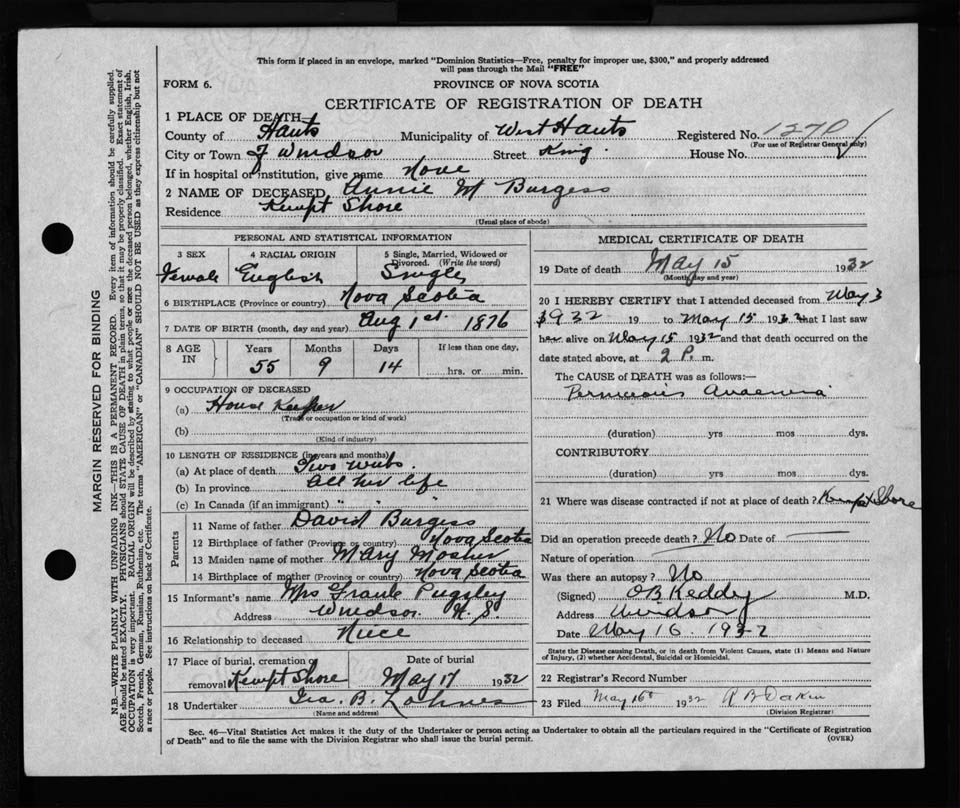 This form if placed in an envelope, marked "Dominion Statistics—Free, penalty for improper use, $300," and properly addressed
will pass through the Mail "FREE"
FORM 6. PROVINCE OF NOVA SCOTIA
CERTIFICATE OF REGISTRATION OF DEATH
1 PLACE OF DEATH
County of Hants Municipality of West Hants Registered No. 1270
(For use of Registrar General only)
City or Town of Windsor Street King. House No.
If in hospital or institution, give name None
2 NAME OF DECEASED Annie M Burgess
Residence Kempt Shore
(Usual place of abode)
PERSONAL AND STATISTICAL INFORMATION
3 SEX 4 RACIAL ORIGIN 5 Single, Married, Widowed or
Divorced. (Write the word)
Female English Single
6 BIRTHPLACE (Province or country) Nova Scotia
7 DATE OF BIRTH (month, day and year) Aug 1st. 1876
8 AGE IN Years Months Days If less than one day,
55 9 14 hrs. or min.
9 OCCUPATION OF DECEASED
(a) House Keeper
(Trade or occupation or kind of work)
(b)
(Kind of industry)
10 LENGTH OF RESIDENCE (in years and months)
(a) At place of death Two weeks.
(b) In province All her life
(c) In Canada (if an immigrant) " " "
Parents
11 Name of father David Burgess
12 Birthplace of father (Province or country) Nova Scotia
13 Maiden name of mother Mary Mosher
14 Birthplace of mother (Province or country) Nova Scotia
15 Informant's name Mrs Frank Pugsley
Address Windsor N.S.
16 Relationship to deceased Niece
17 Place of burial, cremation or removal Kempt Shore Date of burial May 17 1932
18 Undertaker Geo. B. Lohnes
(Name and address)
MEDICAL CERTIFICATE OF DEATH
19 Date of death May 15 1932
(Month, day and year)
20 I HEREBY CERTIFY that I attended deceased from May 3
1932 19 to May 15 1932 that I last saw
her alive on May 15 1932 and that death occurred on the
date stated above, at 2 P. m.
The CAUSE of DEATH was as follows:—
Pernicious Anaemia
(duration) yrs mos dys.
CONTRIBUTORY
(duration) yrs mos dys.
21 Where was disease contracted if not at place of death? Kempt Shore
Did an operation precede death? No Date of
Nature of operation
Was there an autopsy? No
(Signed) O B Keddy M.D.
Address Windsor
Date May 16. 1932
State the Disease causing Death, or in death from Violent Causes, state (1) Means and Nature
of Injury, (2) whether Accidental, Suicidal or Homicidal.
22 Registrar's Record Number
23 Filed May 16th 1932 R B Dakin
(Division Registrar)
Sec. 46—Vital Statistics Act makes it the duty of the Undertaker or person acting as Undertaker to obtain all the particulars required in the "Certificate of Registration
of Death" and to file the same with the Division Registrar who shall issue the burial permit. (OVER)
MARGIN RESERVED FOR BINDING
N.B.—WRITE PLAINLY WITH UNFADING INK—THIS IS A PERMANENT RECORD. Every item of information should be carefully supplied.
AGE should be stated EXACTLY. PHYSICIANS should STATE CAUSE OF DEATH in plain terms, so that it may be properly classified. Exact statement of
OCCUPATION is very important. RACIAL ORIGIN will be described by stating to what people or race the deceased person belonged, whether English, Irish,
Scotch, French, German, Russian, Ruthenian, etc. The terms "AMERICAN" or "CANADIAN" SHOULD NOT BE USED as they express citizenship but not
a race or people. See instructions on back of Certificate.